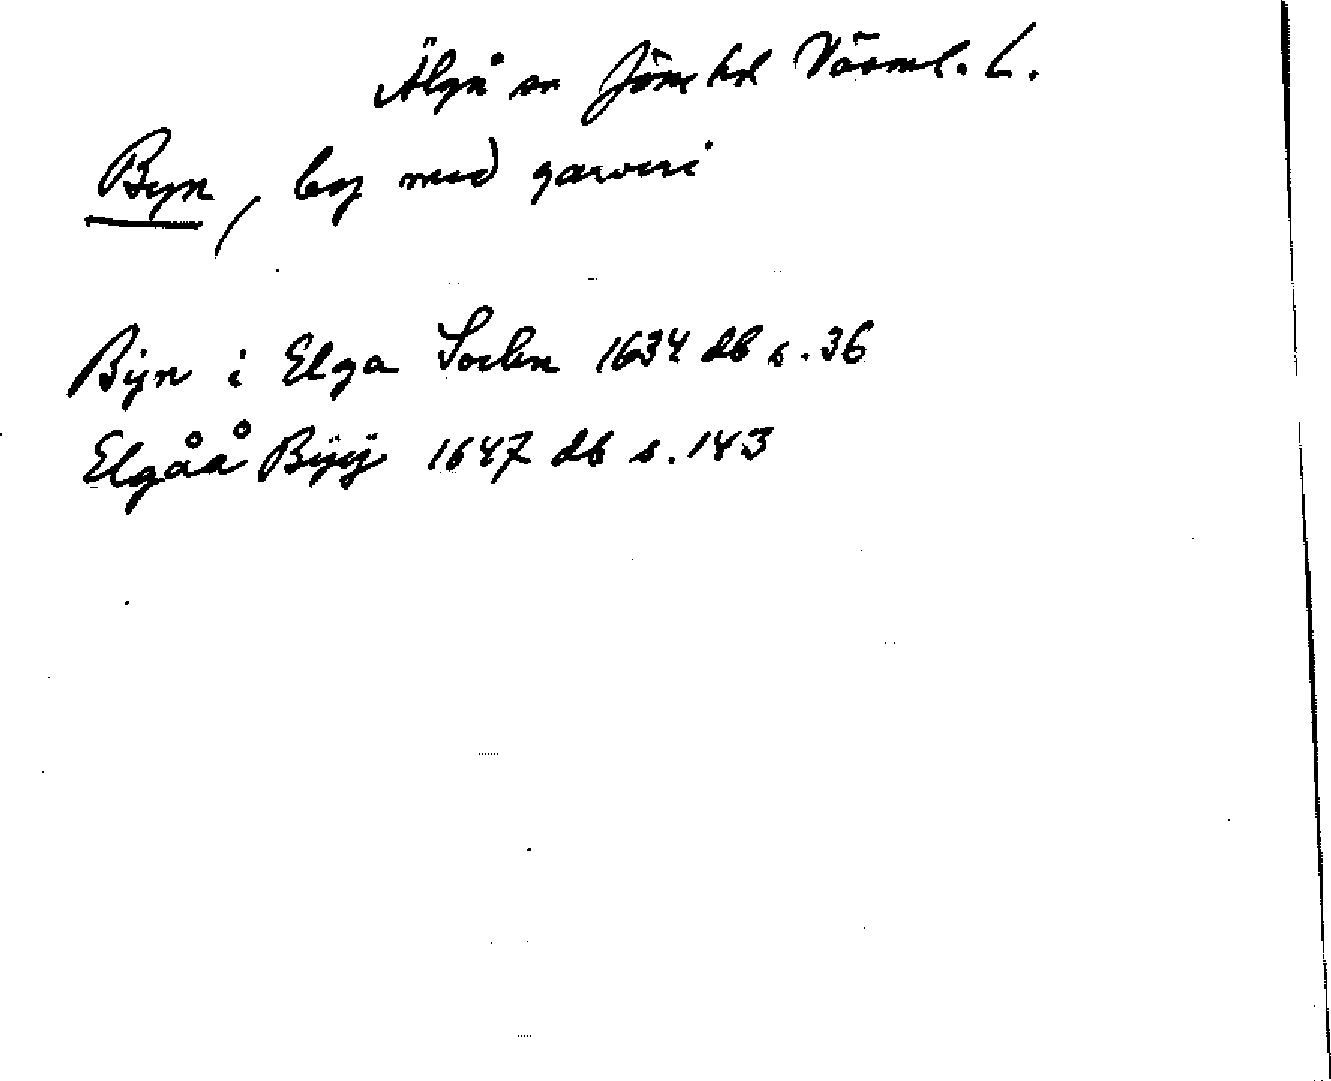 Älgå sn Jösse hd Värml. L.
Byn, by med garveri
Bÿn i Elga Sochn 1634 db s. 36
Elgåå Bÿÿ 1647 db s. 143